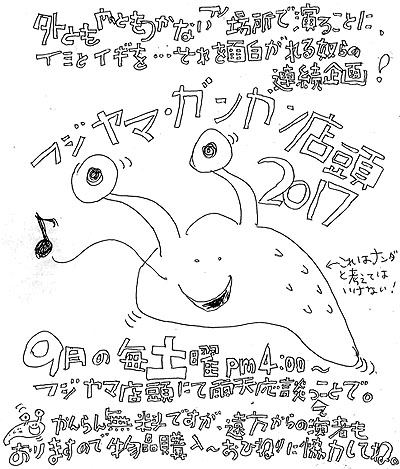 外とも内ともつかない場所で演ることに、
イミとイギを…それを面白がれる奴らの
連続企画!
フジヤマ・ガンガン店頭
2017
←これはナンダ
と考えては
いけない!
9月の毎土曜pm4:00~
フジヤマ店頭にて雨天応談つことで。
かんらん無料ですが、遠方からの演者も
おりますので物品購入~おひねりに協力してね。